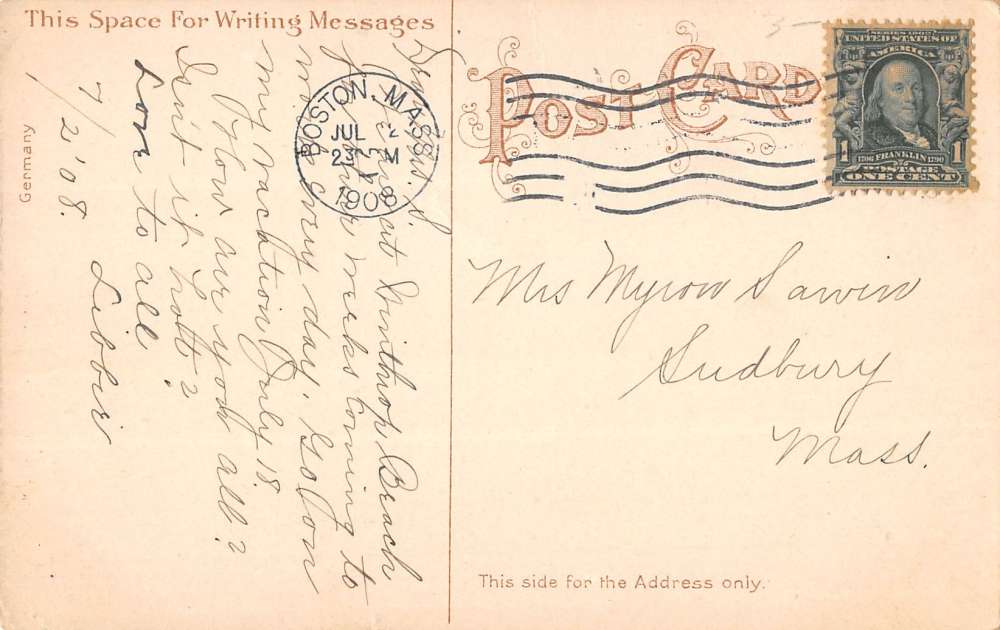 This Space For Writing Messages
Germany
7/2'08.
Dear Mrs. S.
at Winthrop Beach
for four weeks coming to
more every day. Go on
my vaction July 18.
How are you all?
Isn't it hott?
Lov to all
Libbie
POST CARD
BOSTON, MASS.
JUL 2
1908
SERIES 1902
UNITED STATES OF
AMERICA
1 1706 FRANKLIN 1790 1
POSTAGE
ONE CENT
Mrs Myron Sawin
Sudbury
Mass.
This side for the Address only.